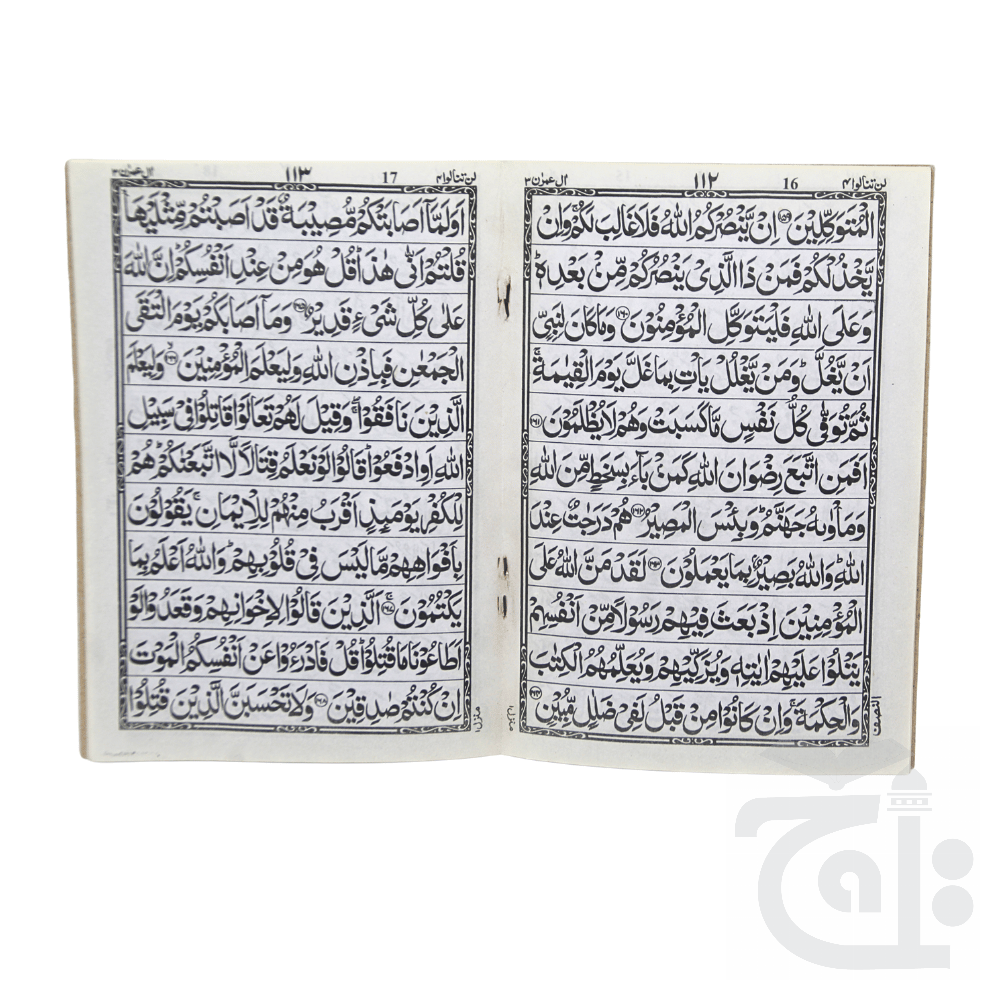 لن تنالوا ۴ ۱۱۲ 16 اٰل عمرٰن ۳
الْمُتَوَكِّلِيْنَ ﴿۱۵۹﴾ اِنْ يَّنْصُرْكُمُ اللّٰهُ فَلَا غَالِبَ لَكُمْ ۚ وَاِنْ
يَّخْذُلْكُمْ فَمَنْ ذَا الَّذِيْ يَنْصُرُكُمْ مِّنْۢ بَعْدِهٖ ؕ
وَعَلَى اللّٰهِ فَلْيَتَوَكَّلِ الْمُؤْمِنُوْنَ ﴿۱۶۰﴾ وَمَا كَانَ لِنَبِيٍّ
اَنْ يَّغُلَّ ؕ وَمَنْ يَّغْلُلْ يَاْتِ بِمَا غَلَّ يَوْمَ الْقِيٰمَةِ ۚ
ثُمَّ تُوَفّٰى كُلُّ نَفْسٍ مَّا كَسَبَتْ وَهُمْ لَا يُظْلَمُوْنَ ﴿۱۶۱﴾
اَفَمَنِ اتَّبَعَ رِضْوَانَ اللّٰهِ كَمَنْۢ بَآءَ بِسَخَطٍ مِّنَ اللّٰهِ
وَمَاْوٰىهُ جَهَنَّمُ ؕ وَبِئْسَ الْمَصِيْرُ ﴿۱۶۲﴾ هُمْ دَرَجٰتٌ عِنْدَ
اللّٰهِ ؕ وَاللّٰهُ بَصِيْرٌۢ بِمَا يَعْمَلُوْنَ ﴿۱۶۳﴾ لَقَدْ مَنَّ اللّٰهُ عَلَى
الْمُؤْمِنِيْنَ اِذْ بَعَثَ فِيْهِمْ رَسُوْلًا مِّنْ اَنْفُسِهِمْ
يَتْلُوْا عَلَيْهِمْ اٰيٰتِهٖ وَيُزَكِّيْهِمْ وَيُعَلِّمُهُمُ الْكِتٰبَ
وَالْحِكْمَةَ ۚ وَاِنْ كَانُوْا مِنْ قَبْلُ لَفِيْ ضَلٰلٍ مُّبِيْنٍ ﴿۱۶۴﴾
النصف
منزل ۱
لن تنالوا ۴ 17 ۱۱۳ اٰل عمرٰن ۳
اَوَلَمَّآ اَصَابَتْكُمْ مُّصِيْبَةٌ قَدْ اَصَبْتُمْ مِّثْلَيْهَا ۙ
قُلْتُمْ اَنّٰى هٰذَا ؕ قُلْ هُوَ مِنْ عِنْدِ اَنْفُسِكُمْ ؕ اِنَّ اللّٰهَ
عَلٰى كُلِّ شَيْءٍ قَدِيْرٌ ﴿۱۶۵﴾ وَمَآ اَصَابَكُمْ يَوْمَ الْتَقَى
الْجَمْعٰنِ فَبِاِذْنِ اللّٰهِ وَلِيَعْلَمَ الْمُؤْمِنِيْنَ ۙ﴿۱۶۶﴾ وَلِيَعْلَمَ
الَّذِيْنَ نَافَقُوْا ۖۚ وَقِيْلَ لَهُمْ تَعَالَوْا قَاتِلُوْا فِيْ سَبِيْلِ
اللّٰهِ اَوِ ادْفَعُوْا ؕ قَالُوْا لَوْ نَعْلَمُ قِتَالًا لَّا اتَّبَعْنٰكُمْ ؕ هُمْ
لِلْكُفْرِ يَوْمَئِذٍ اَقْرَبُ مِنْهُمْ لِلْاِيْمَانِ ۚ يَقُوْلُوْنَ
بِاَفْوَاهِهِمْ مَّا لَيْسَ فِيْ قُلُوْبِهِمْ ؕ وَاللّٰهُ اَعْلَمُ بِمَا
يَكْتُمُوْنَ ۚ﴿۱۶۷﴾ اَلَّذِيْنَ قَالُوْا لِاِخْوَانِهِمْ وَقَعَدُوْا لَوْ
اَطَاعُوْنَا مَا قُتِلُوْا ؕ قُلْ فَادْرَءُوْا عَنْ اَنْفُسِكُمُ الْمَوْتَ
اِنْ كُنْتُمْ صٰدِقِيْنَ ﴿۱۶۸﴾ وَلَا تَحْسَبَنَّ الَّذِيْنَ قُتِلُوْا
منزل ۱
تاج